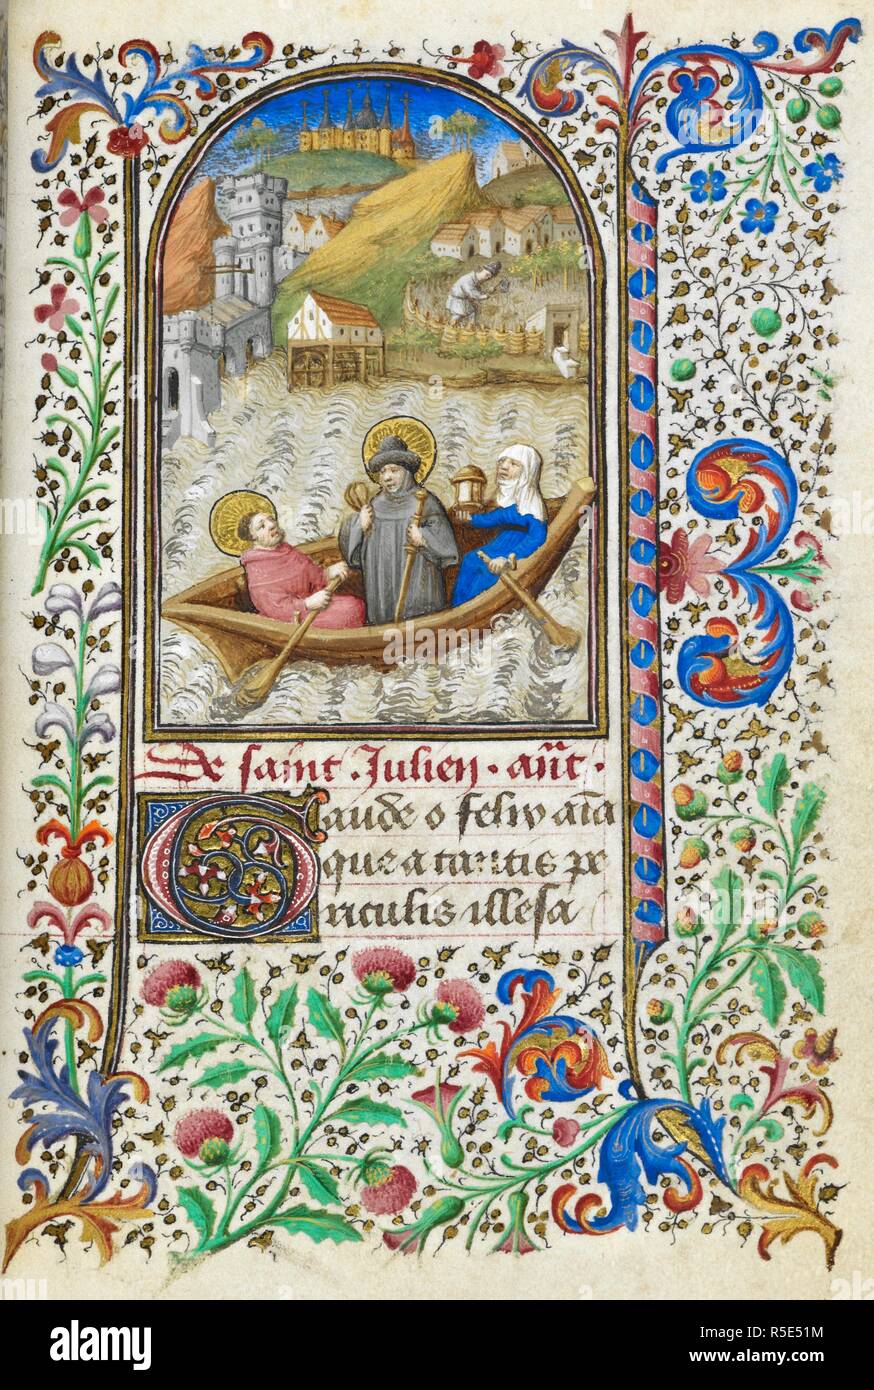 De saint . Julien . an̄t .
Gaude o felix aīa
que a tantis pe
riculis illesa
alamy
Image ID: R5E51M
www.alamy.com